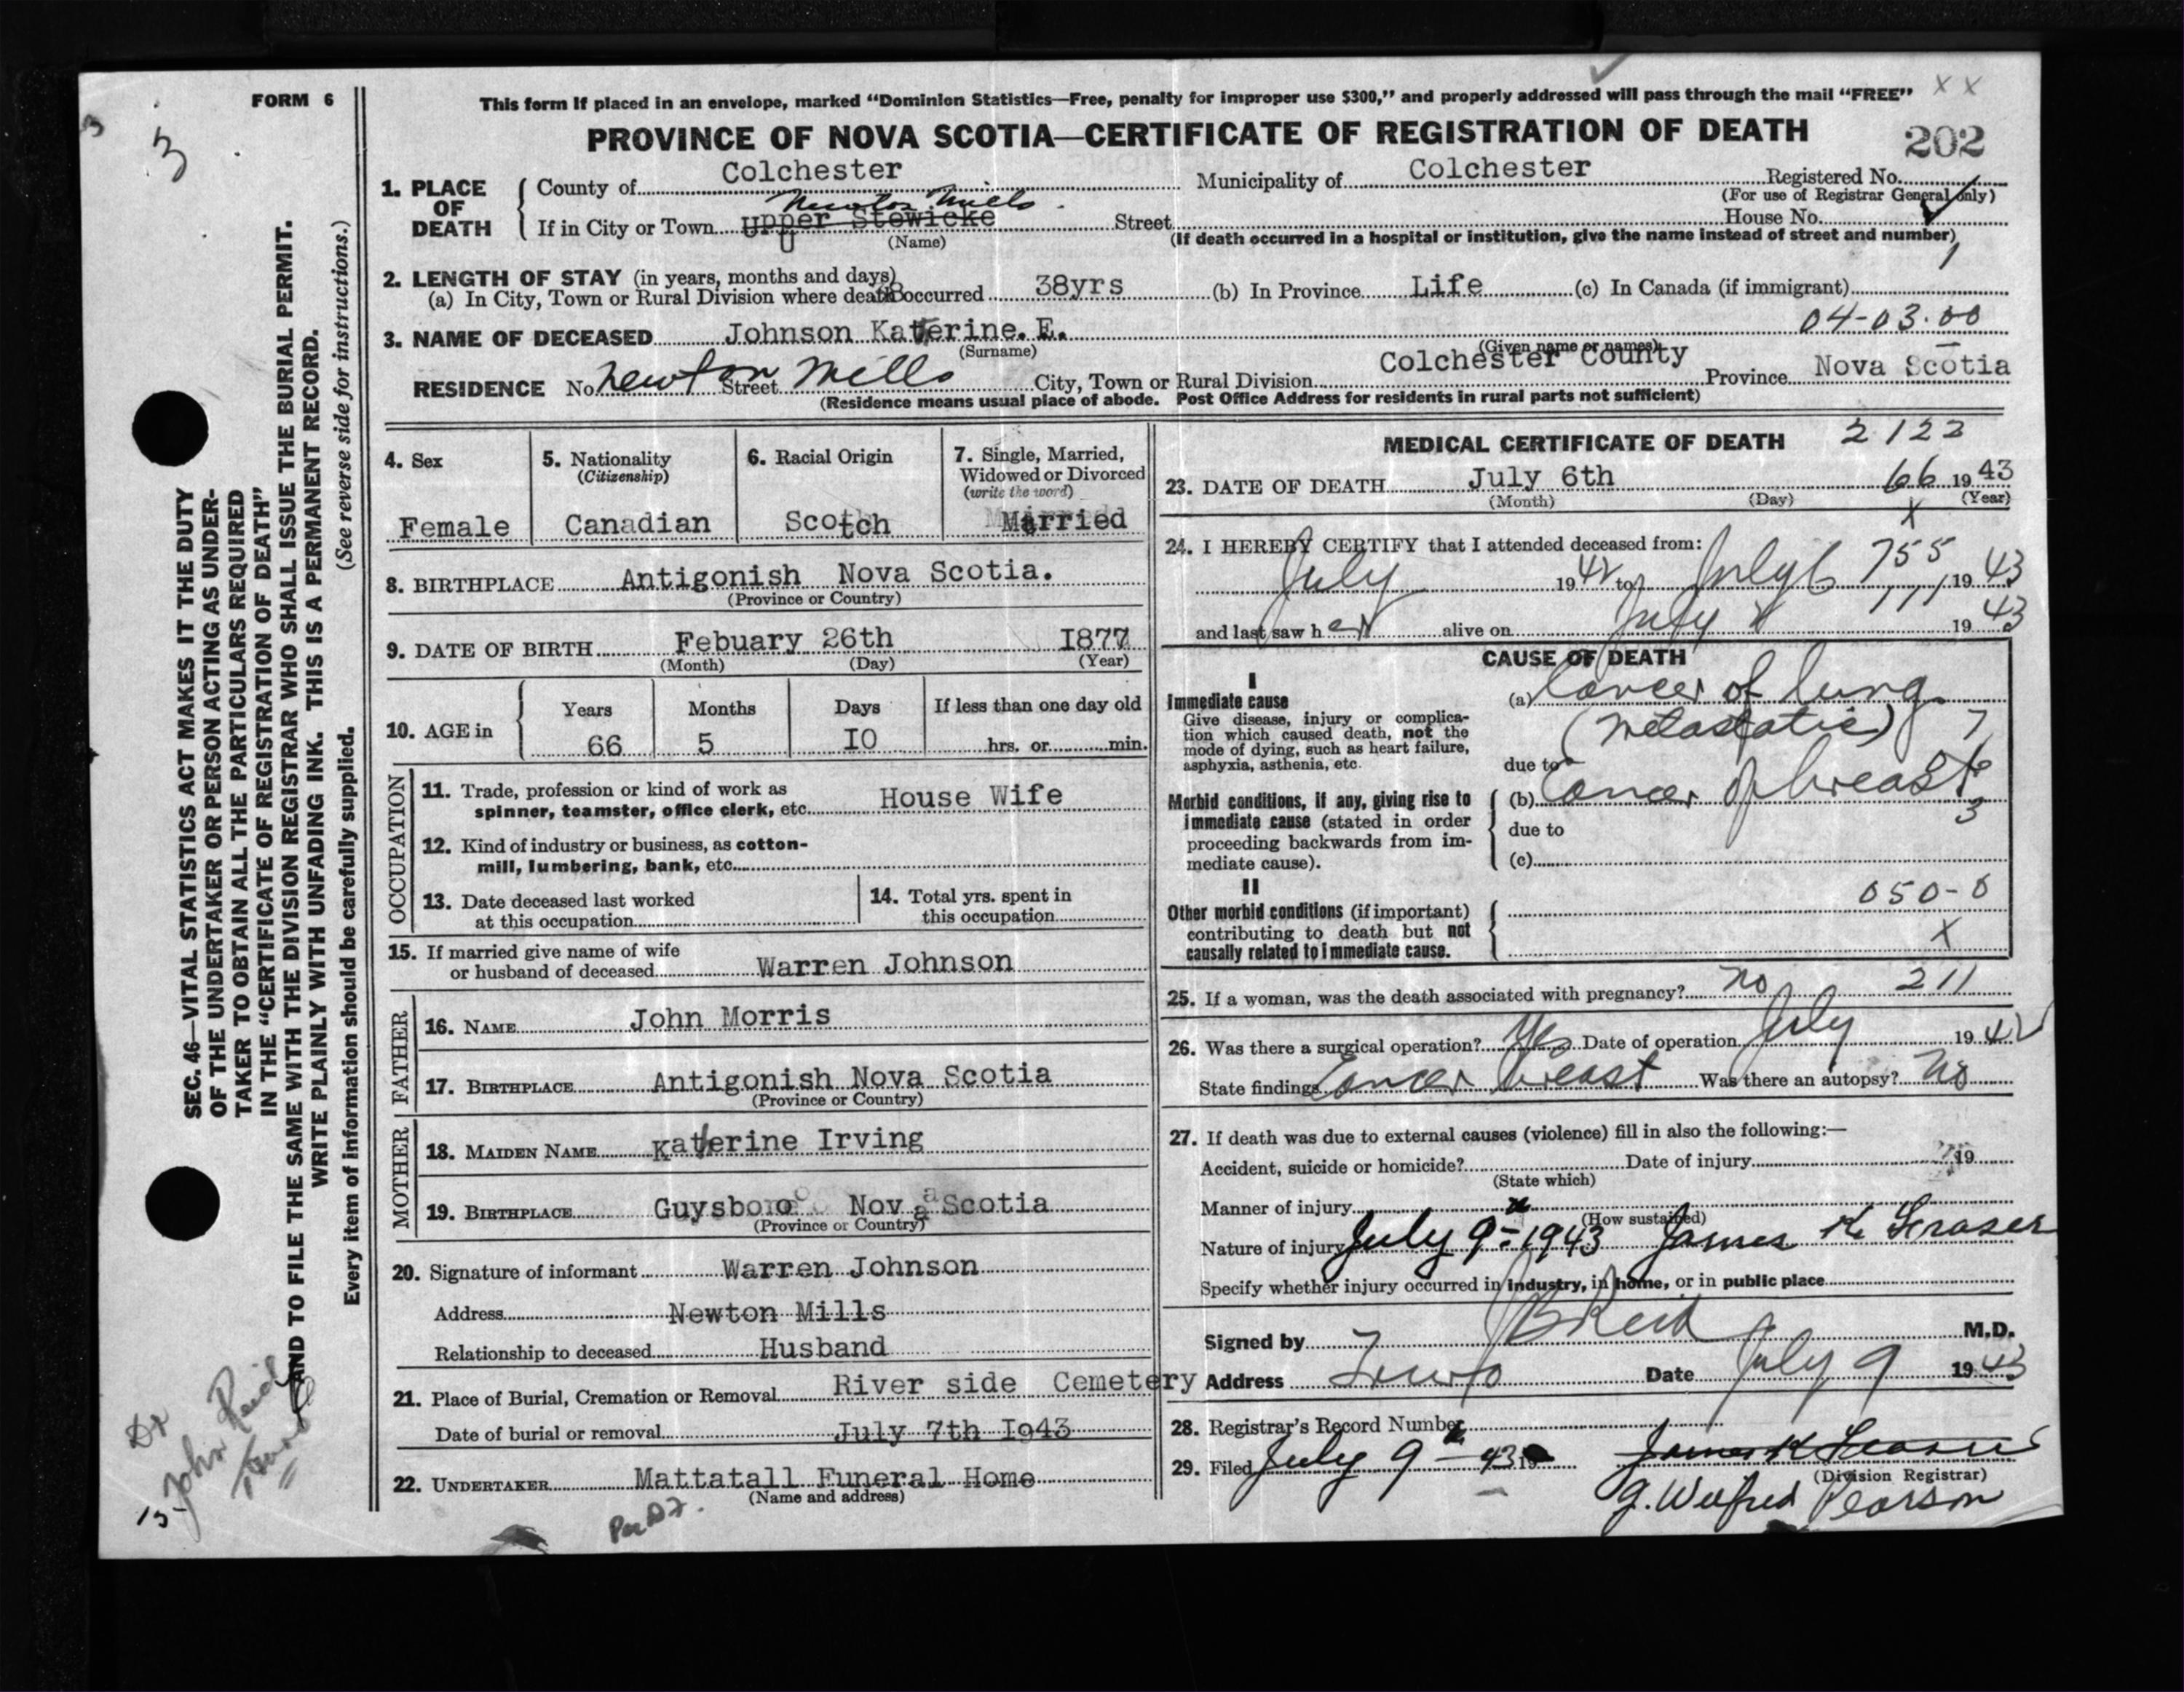 FORM 6
This form if placed in an envelope, marked “Dominion Statistics—Free, penalty for improper use $300,” and properly addressed will pass through the mail “FREE” X X
PROVINCE OF NOVA SCOTIA—CERTIFICATE OF REGISTRATION OF DEATH
202
3
3
1. PLACE OF DEATH
County of Colchester Municipality of Colchester Registered No.
(For use of Registrar General only)
Newton Mills
If in City or Town Upper Stewicke Street House No.
(Name) (If death occurred in a hospital or institution, give the name instead of street and number)
2. LENGTH OF STAY (in years, months and days)
(a) In City, Town or Rural Division where death occurred 38yrs (b) In Province Life (c) In Canada (if immigrant)
04-03.00
3. NAME OF DECEASED Johnson Katherine. E.
(Surname) (Given name or names)
RESIDENCE No. Newton Street Mills City, Town or Rural Division Colchester County Province Nova Scotia
(Residence means usual place of abode. Post Office Address for residents in rural parts not sufficient)
4. Sex
Female
5. Nationality
(Citizenship)
Canadian
6. Racial Origin
Scotch
7. Single, Married,
Widowed or Divorced
(write the word)
Married
8. BIRTHPLACE Antigonish Nova Scotia.
(Province or Country)
9. DATE OF BIRTH Febuary 26th I877
(Month) (Day) (Year)
10. AGE in
Years Months Days If less than one day old
66 5 IO hrs. or min.
OCCUPATION
11. Trade, profession or kind of work as
spinner, teamster, office clerk, etc. House Wife
12. Kind of industry or business, as cotton-
mill, lumbering, bank, etc.
13. Date deceased last worked
at this occupation
14. Total yrs. spent in
this occupation
15. If married give name of wife
or husband of deceased Warren Johnson
FATHER
16. NAME John Morris
17. BIRTHPLACE Antigonish Nova Scotia
(Province or Country)
MOTHER
18. MAIDEN NAME Katherine Irving
19. BIRTHPLACE Guysboro Nova Scotia
(Province or Country)
20. Signature of informant Warren Johnson
Address Newton Mills
Relationship to deceased Husband
21. Place of Burial, Cremation or Removal River side Cemetery
Date of burial or removal July 7th I943
22. UNDERTAKER Mattatall Funeral Home
(Name and address)
MEDICAL CERTIFICATE OF DEATH 2122
23. DATE OF DEATH July 6th 66 1943
(Month) (Day) (Year)
X
24. I HEREBY CERTIFY that I attended deceased from:
July 1942 to July 6 755 1943
and last saw her alive on July 1943
CAUSE OF DEATH
I
Immediate cause
Give disease, injury or complica-
tion which caused death, not the
mode of dying, such as heart failure,
asphyxia, asthenia, etc.
(a) Cancer of lung
(metastatic) 7
due to
Morbid conditions, if any, giving rise to
immediate cause (stated in order
proceeding backwards from im-
mediate cause).
(b) Cancer of breast
3
due to
(c)
II
Other morbid conditions (if important)
contributing to death but not
causally related to immediate cause.
050-0
X
25. If a woman, was the death associated with pregnancy? no 211
26. Was there a surgical operation? Yes Date of operation July 1942
State findings Cancer breast Was there an autopsy? No
27. If death was due to external causes (violence) fill in also the following:—
Accident, suicide or homicide? Date of injury 19
(State which)
Manner of injury
(How sustained)
Nature of injury July 9 - 1943 James K Fraser
Specify whether injury occurred in industry, in home, or in public place
Signed by J B Reid M.D.
Address Truro Date July 9 1943
28. Registrar's Record Number
29. Filed July 9 - 43 19 James K Fraser
(Division Registrar)
G. Wilfred Pearson
SEC. 46—VITAL STATISTICS ACT MAKES IT THE DUTY
OF THE UNDERTAKER OR PERSON ACTING AS UNDER-
TAKER TO OBTAIN ALL THE PARTICULARS REQUIRED
IN THE “CERTIFICATE OF REGISTRATION OF DEATH”
AND TO FILE THE SAME WITH THE DIVISION REGISTRAR WHO SHALL ISSUE THE BURIAL PERMIT.
WRITE PLAINLY WITH UNFADING INK. THIS IS A PERMANENT RECORD.
(See reverse side for instructions.)
Every item of information should be carefully supplied.
Dr
John Reid
Truro